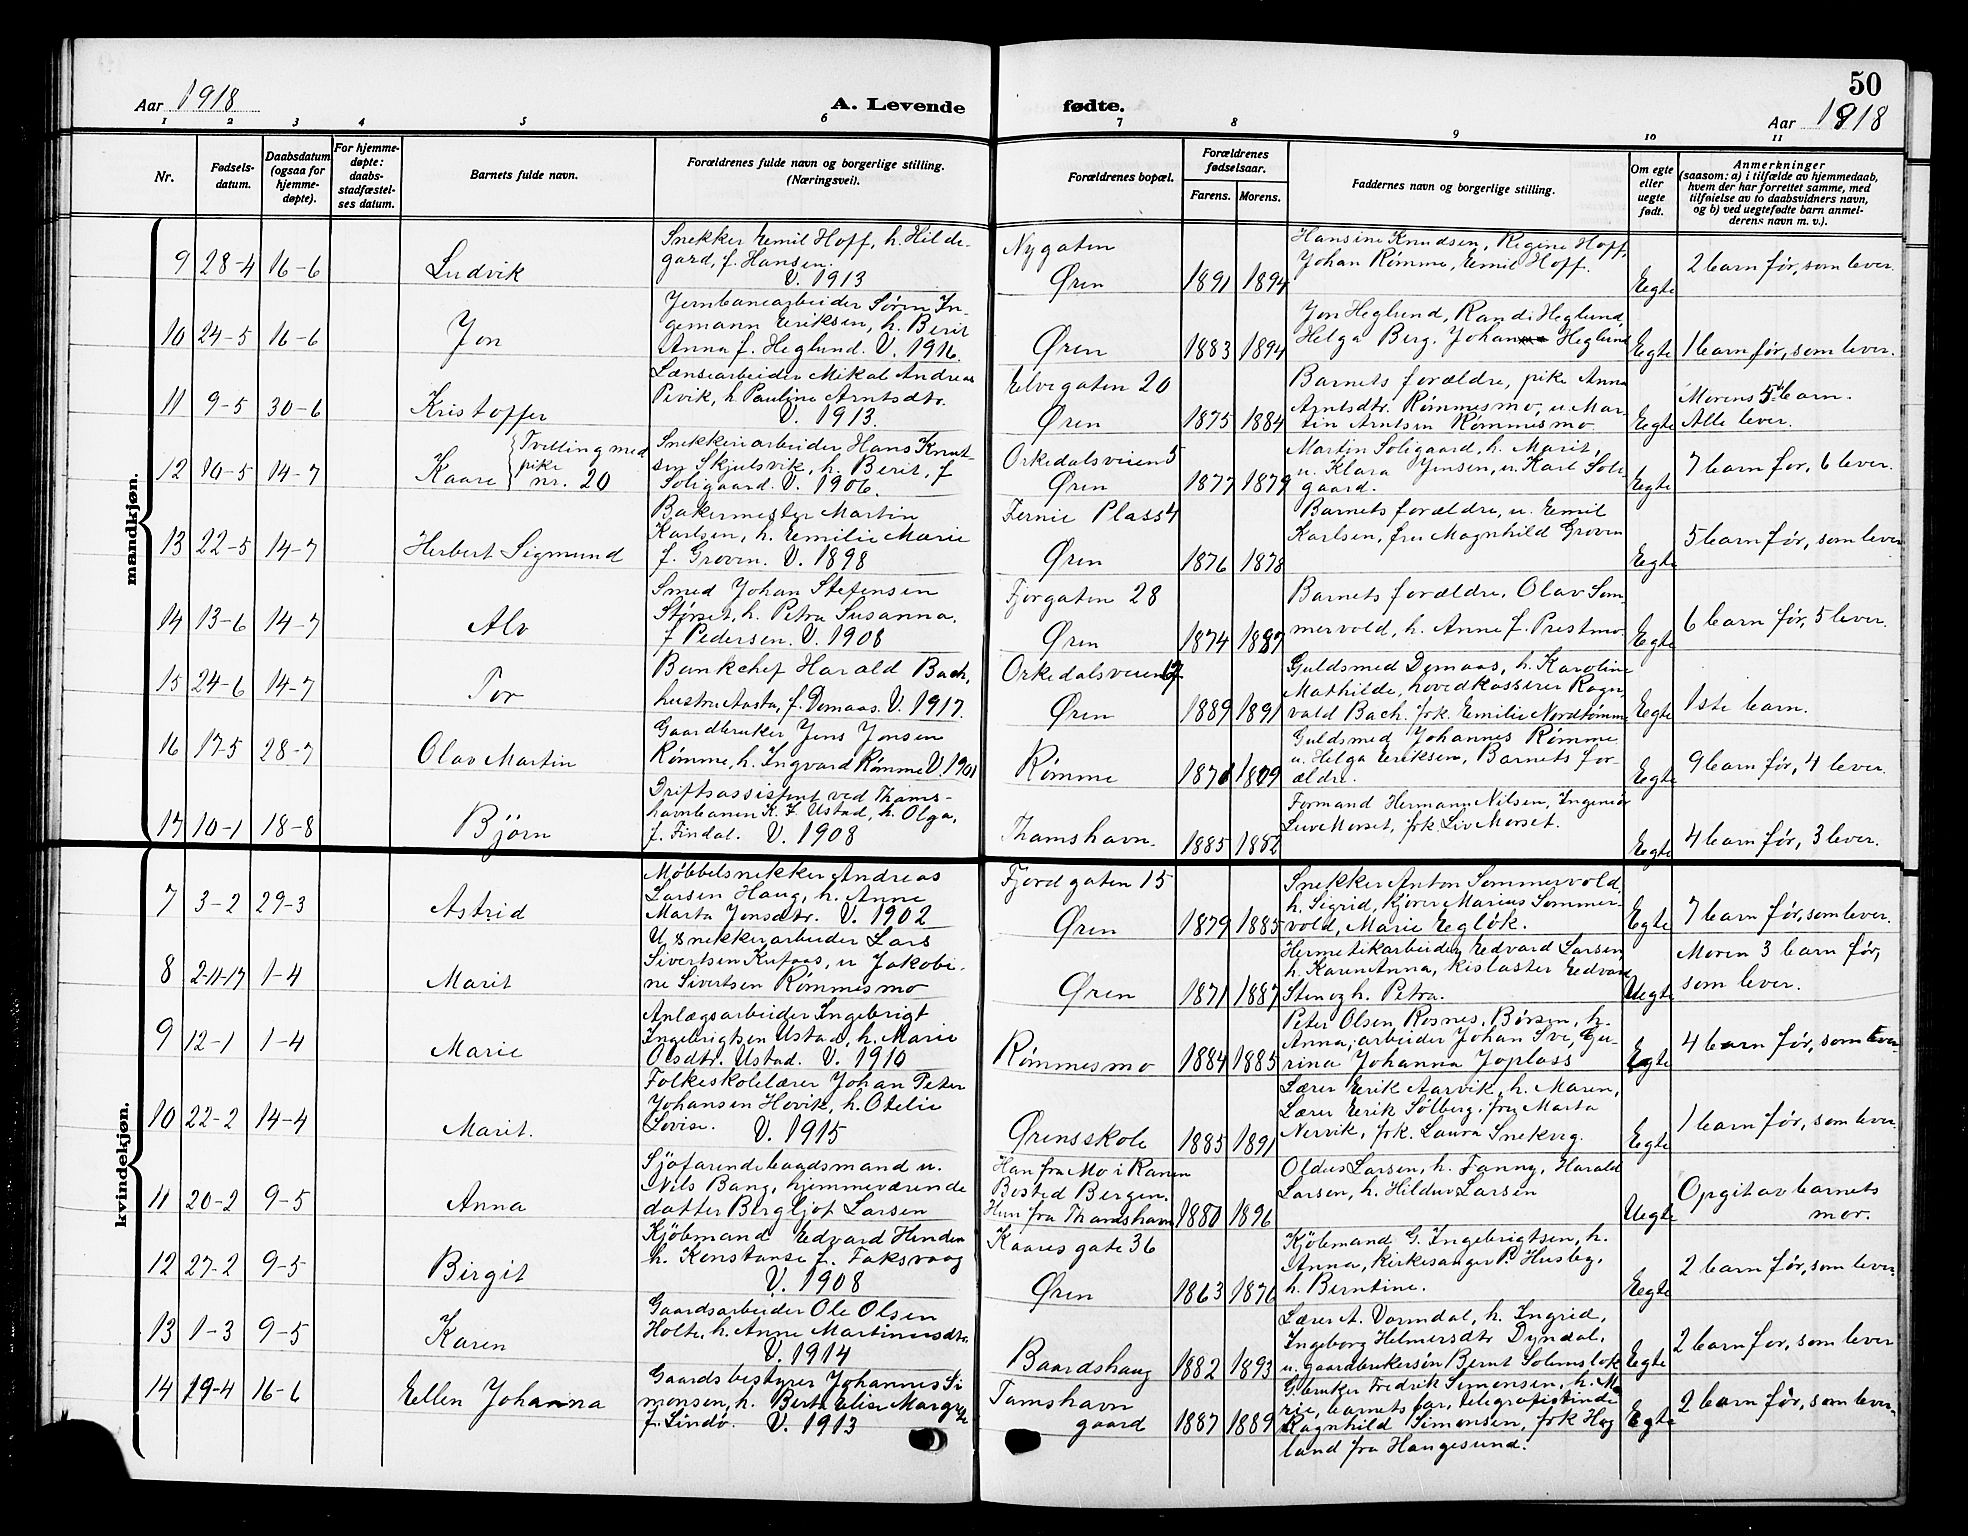 50
Aar 1918
A. Levende fødte.
Aar 1918
1 2 3 4 5 6 7 8 9 10 11
Nr.
Fødsels-
datum.
Daabsdatum
(ogsaa for
hjemme-
døpte).
For hjemme-
døpte:
daabs-
stadfæstel-
ses datum.
Barnets fulde navn.
Forældrenes fulde navn og borgerlige stilling.
(Næringsvei).
Forældrenes bopæl.
Forældrenes
fødselsaar.
Farens. Morens.
Faddernes navn og borgerlige stilling.
Om egte
eller
uegte
født.
Anmerkninger
(saasom: a) i tilfælde av hjemmedaab,
hvem der har forrettet samme, med
tilføielse av to daabsvidners navn,
og b) ved uegtefødte barn anmel-
derens navn m. v.).
mandkjøn.
9 28-4 16-6 Ludvik
Snekker Emil Hoff, h. Hilde-
gard, f. Hansen.
V. 1913
Nygaten
Øren 1891 1894
Hansine Knudsen, Regine Hoff,
Johan Rømme, Emil Hoff.
Eegte
2 barn før, som lever.
10 24-5 16-6 Jon
Jernbanearbeider Søren In-
gemann Eriksen, h. Berit
Anna f. Heglund. V. 1916.
Øren 1883 1894
Jon Heglund, Randi Heglund,
Helga Berg, Johan Heglund
Eegte
1 barn før, som lever.
11 9-5 30-6 Kristoffer
Lænsearbeider Mikal Andreas
Pevik, h. Pauline Arntsdtr.
V. 1913.
Elvegaten 20
Øren 1875 1884
Barnets forældre, pike Anna
Arntsdtr. Rømmesmo, u. Mar-
tin Arntsen Rømmesmo
Eegte
Morens 5te barn.
Alle lever.
12 10-5 14-7 Kaare
Tvilling med
pike
nr. 20
Snekkerarbeider Hans Knut-
sen Skjulsvik, h. Berit, f
Soligaard. V. 1906.
Orkedalsveien 5
Øren 1877 1879
Martin Soligaard, h. Marit,
u. Klara Jensen, u. Karl Soli-
gaard.
Eegte
7 barn før, 6 lever.
13 22-5 14-7 Herbert Sigmund
Bakermester Martin
Karlsen, h. Emilie Marie
f. Grovin. V. 1898
Fernie Plass 4
Øren 1876 1878
Barnets forældre, u. Emil
Karlsen, fru Magnhild Grovin
Eegte
5 barn før, som lever
14 13-6 14-7 Alv
Smed Johan Stefensen
Størset, h. Petra Susanna,
f Pedersen. V. 1908
Fjorgaten 28
Øren 1874 1887
Barnets forældre, Olav Som-
mervold, h. Anne f. Prestmo.
Eegte
6 barn før, 5 lever.
15 24-6 14-7 Tor
Bankchef Harald Bach,
hustru Aasta, f. Domaas. V. 1917.
Orkedalsveien
Øren 1889 1891
Guldsmed Domaas, h. Karoline
Mathilde, hovedkasserer Ragn-
vald Bach. frk. Emilie Nordtømme
Eegte
1ste barn.
16 17-5 28-7 Olav Martin
Gaardbruker Jens Jonsen
Rømme, h. Ingvard Rømme V 1901
Rømme
Guldsmed Johannes Rømme
u. Helga Eriksen, Barnets for-
ældre.
Eegte
9 barn før, 4 lever.
17 10-1 18-8 Bjørn
Driftsassistent ved Thams-
havnbanen K. F. Ustad, h. Olga,
f. Findal. V. 1908
Thamshavn. 1885 1882
Formand Hermann Nilsen, Ingeniør
Morset, frk. Liv Morset.
Eegte
4 barn før, 3 lever.
kvindekjøn.
7 3-2 29-3 Astrid
Møbbelsnekker Andreas
Larsen Haug, h. Anne
Marta Jonsdtr. V. 1902
Fjordgaten 15
Øren 1879 1885
Snekker Anton Sommervold,
h. Sigrid, kjører Marius Sommer-
vold, Marie Egløk.
Eegte
7 barn før, som lever.
8 2-11-17 1-4 Marit
U snekkerarbeider Lars
Sivertsen Kufaas, u Jakobi-
ne Sivertsen Rømmesmo
Øren 1871 1887
Hermetikarbeider Edvard Larsen,
h. Karen Anna, kislaster Edvard
Sten og h. Petra.
Uegte
Moren 3 barn før,
som lever.
9 12-1 1-4 Marie
Anlægsarbeider Ingebrigt
Ingebrigtsen Ustad, h. Marie
Olsdtr. Ustad. V. 1910
Rømmesmo 1884 1885
Peter Olsen Rosnes, Børsen, h.
Anna, arbeider Johan Sve, Gu-
rina Johanna Joplass
Eegte
4 barn før, som lever.
10 22-2 14-4 Marit.
Folkeskolelærer Johan Peter
Johansen Hovik, h. Otelie
Lovise. V. 1915
Ørensskole 1885 1891
Lærer Erik Aarvik, h. Maren,
Lærer Erik Sølberg, fru Marta
Nervik, frk. Laura Snekvig.
Eegte
1 barn før, som lever.
11 20-2 9-5 Anna
Sjøfarende baadsmand u.
Nils Bang, hjemmeværende
datter Bergljot Larsen
Han fra Mo i Ranen
Bosted Bergen.
Hun fra Thamshavn 1880 1896
Oldus Larsen, h. Fanny, Harald
Larsen, h. Hildur Larsen
Uegte
Opgit av barnets
mor.
12 27-2 9-5 Birgit
Kjøbmand Edvard Henden
h. Konstanse f. Faksvaag
V. 1908
Kaares gate 36
Øren 1863 1876
Kjøbmand G. Ingebrigtsen, h.
Anna, kirkesanger P. Husby,
h. Berntine.
Eegte
2 barn før, som lever.
13 1-3 9-5 Karen
Gaardsarbeider Ole Olsen
Holte, h. Anne Martinusdtr.
V. 1914
Baardshaug 1882 1893
Lærer A. Dormdal, h. Ingrid,
Ingeborg Helmersdtr Dyndal,
u. gaardbrukersøn Bernt Solemslok
Eegte
2 barn for, som lever
14 19-4 16-6 Ellen Johanna
Gaardsbestyrer Johannes Si
monsen, h. Berth Elise Margrete
f. Lindø. V. 1913
Tamshavn
gaard 1887 1889
G.bruker Fredrik Simonsen, h. Ma
rie, barnets far, telegrafistinde
Ragnhild Simonsen, frk Hog
land fra Haugesund.
Eegte
2 barn før, som lever.